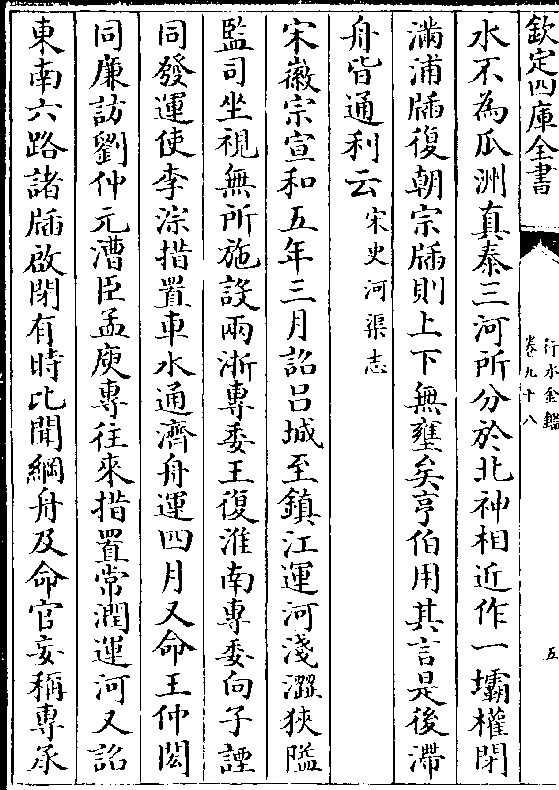 欽定四庫全書
行水金鑑
卷九十八
五
水不為瓜洲真泰三河所分於北神相近作一壩權閉
滿浦牐復朝宗牐則上下無壅矣亨伯用其言是後滯
舟皆通利云宋史河渠志
宋徽宗宣和五年三月詔吕城至鎮江運河淺澀狹隘
監司坐視無所施設兩浙專委王復淮南專委向子諲
同發運使李淙措置車水通濟舟運四月又命王仲閎
同廉訪劉仲元漕臣孟庾專往來措置常潤運河又詔
東南六路諸牐啟閉有時比聞綱舟及命官妄稱專承